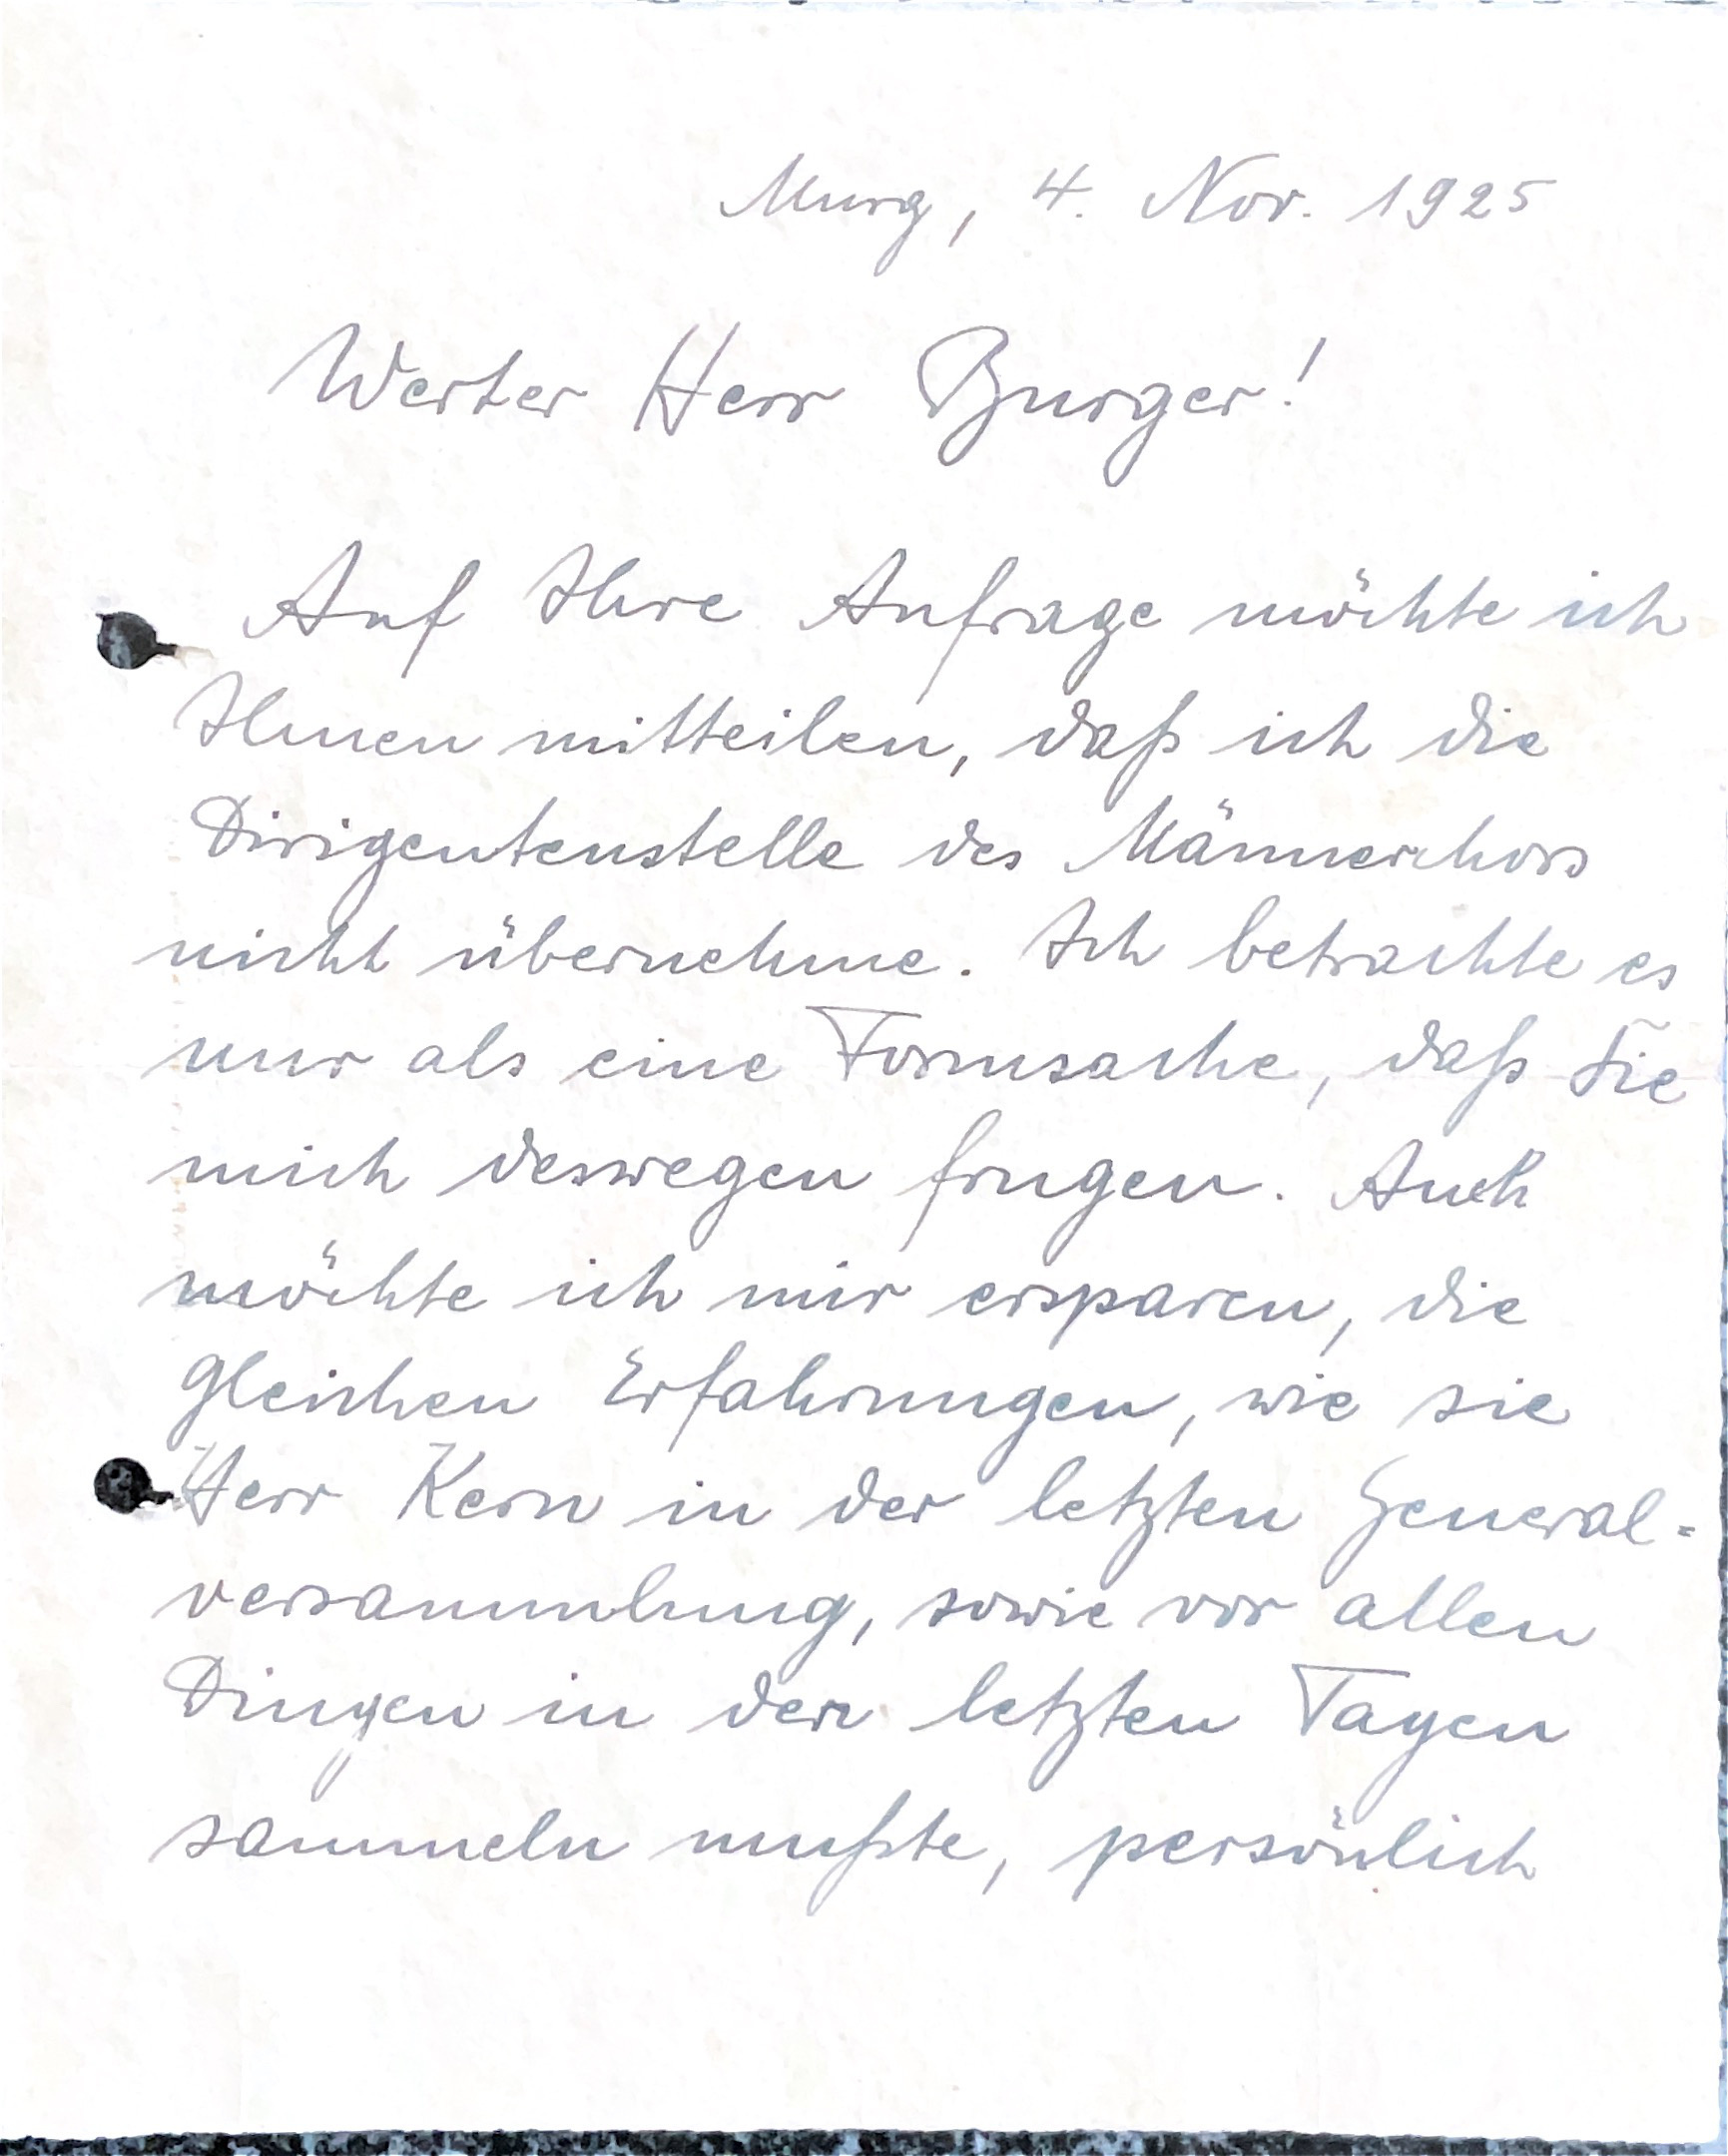 Murg, 4. Nov. 1925
Werter Herr Burger!
Auf Ihre Anfrage möchte ich
Ihnen mitteilen, daß ich die
Dirigentenstelle des Männerchors
nicht übernehme. Ich betrachte es
nur als eine Formsache, daß Sie
mich deswegen frugen. Auch
möchte ich mir ersparen, die
gleichen Erfahrungen, wie sie
Herr Kern in der letzten General-
versammlung, sowie vor allen
Dingen in den letzten Tagen
sammeln mußte, persönlich